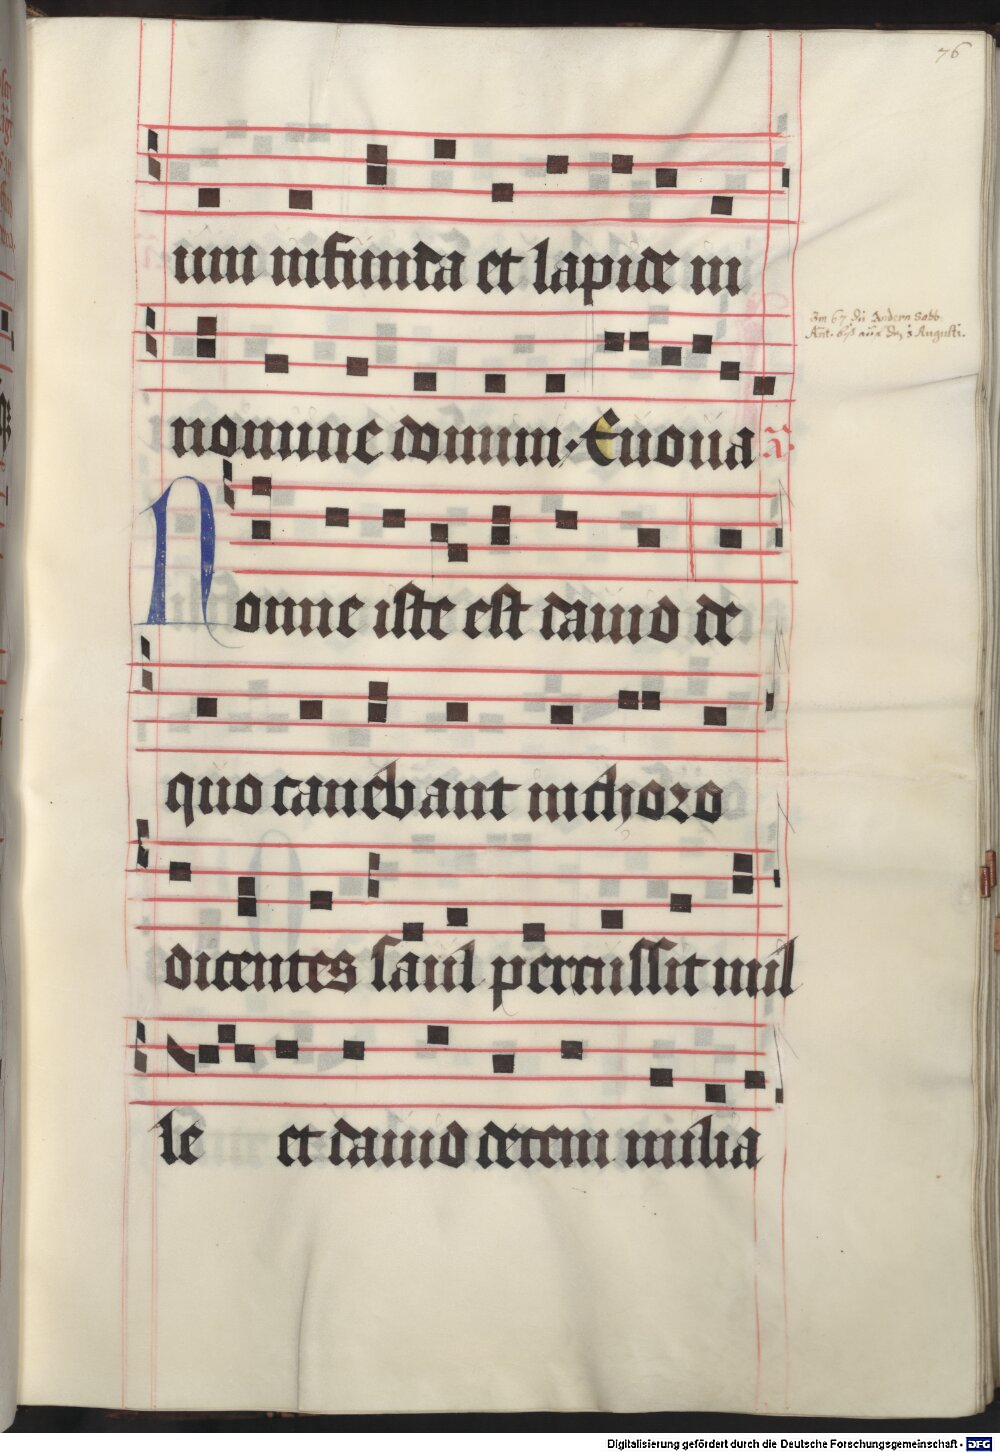 76
um in funda et lapide in
nomine domini · Euouae
añ.
Nonne iste est dauid de
quo canebant in choro
dicentes saul percussit mil
le et dauid decem milia
Digitalisierung gefördert durch die Deutsche Forschungsgemeinschaft - DFG